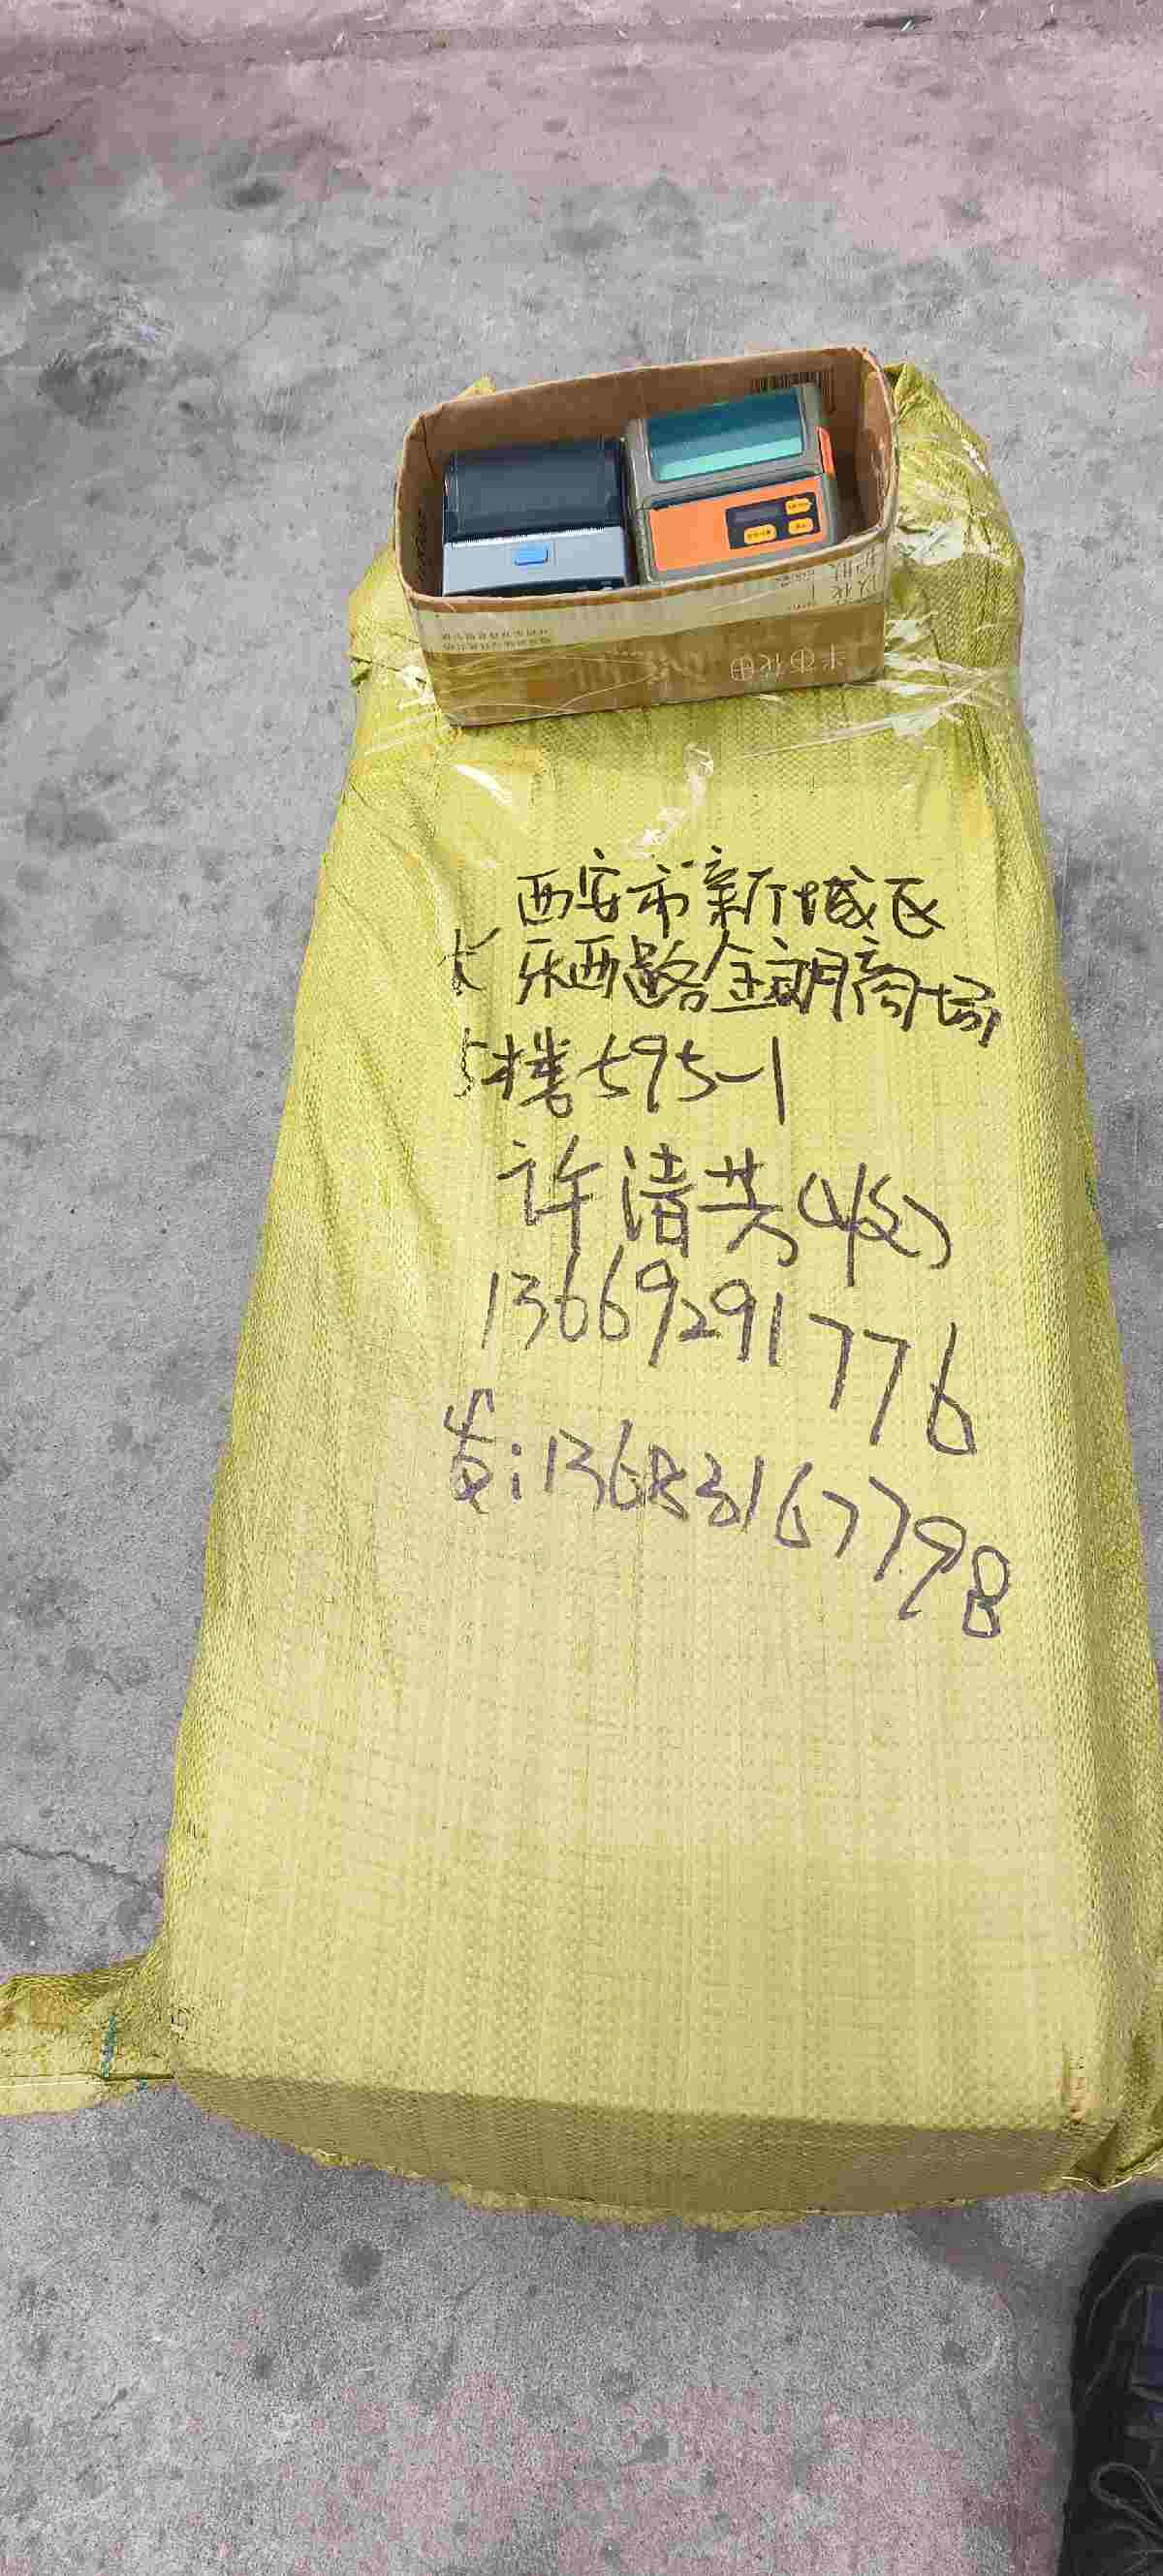 西安市新城区
长乐西路金朗商场
5楼595-1
许清芸(收)
13669291776
发:13683167798